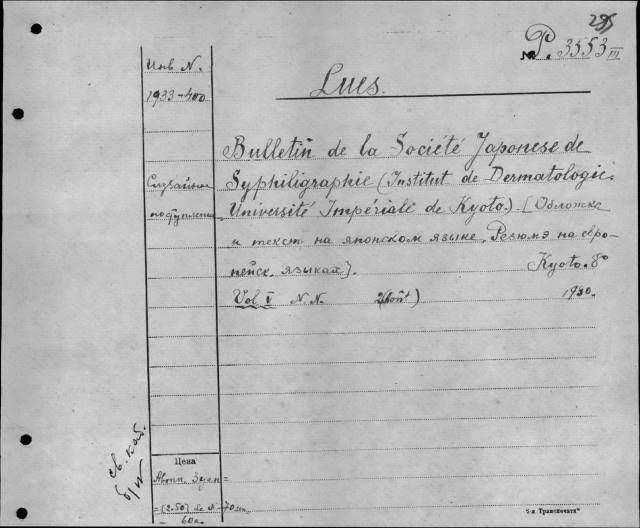 295
№ P. 3553 III
Инв. N.
1933-400
Lues.
Bulletin de la Société Japonese de
Syphiligraphie (Institut de Dermatologie.
Université Impériale de Kyoto.). [Обложка
и текст на японском языке. Резюмэ на евро
пейск. языках].
Kyoto. 8°
Vol V N.N.
1930.
Случайные
поступления
Цена
= (2.50)
= 60к.